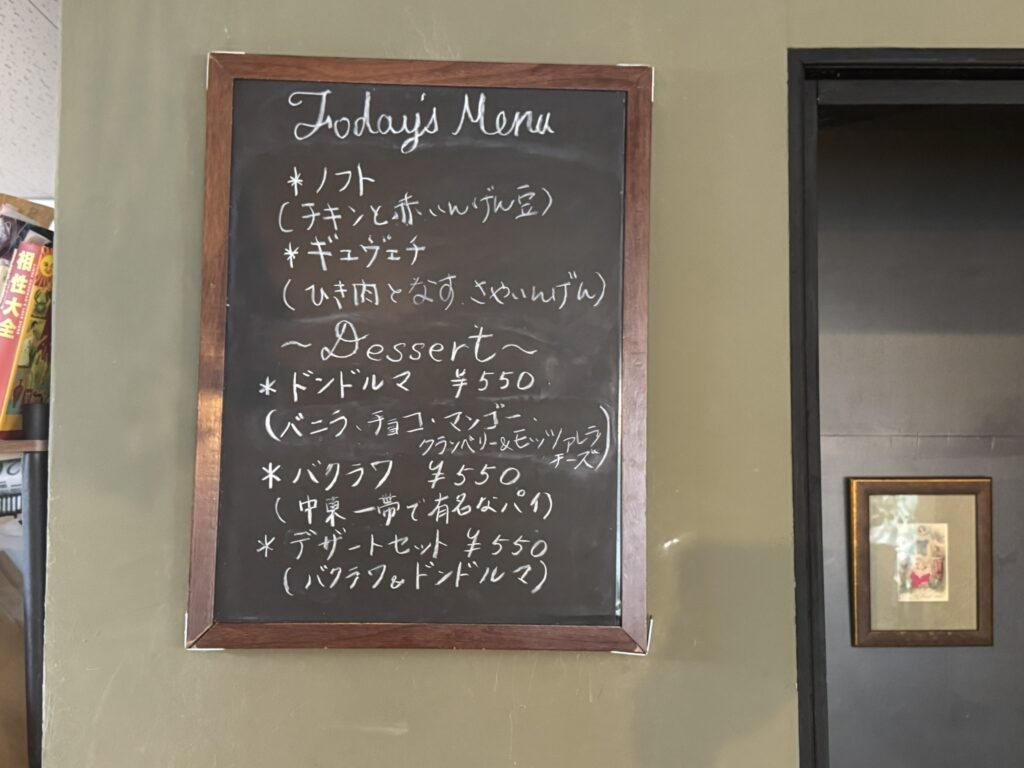 Today's Menu
*ノフト
(チキンと赤いんげん豆)
*ギュヴェチ
(ひき肉となす、さやいんげん)
～Dessert～
*ドンドルマ ¥550
(バニラ、チョコ・マンゴー、
クランベリー&モッツァレラ
チーズ)
*バクラワ ¥550
(中東一帯で有名なパイ)
*デザートセット ¥550
(バクラワ&ドンドルマ)
相性大全